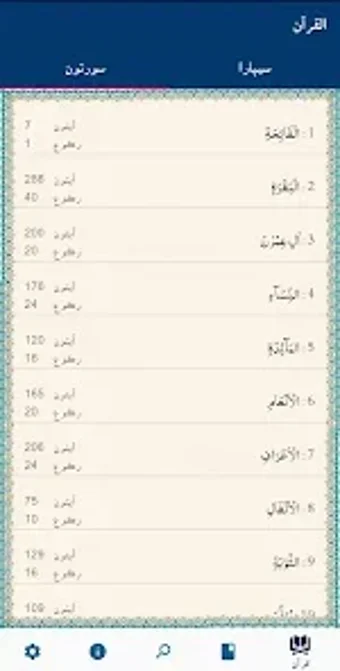 القرآن
سيپارا
سورتون
1. الْفَاتِحَةِ
آيتون 7
رڪوع 1
2. الْبَقَرَةِ
آيتون 286
رڪوع 40
3. اٰلِ عِمْرٰنَ
آيتون 200
رڪوع 20
4. النِّسَآءِ
آيتون 176
رڪوع 24
5. الْمَآئِدَةِ
آيتون 120
رڪوع 16
6. الْاَنْعَامِ
آيتون 165
رڪوع 20
7. الْاَعْرَافِ
آيتون 206
رڪوع 24
8. الْاَنْفَالِ
آيتون 75
رڪوع 10
9. التَّوْبَةِ
آيتون 129
رڪوع 16
آيتون 109
قرآن